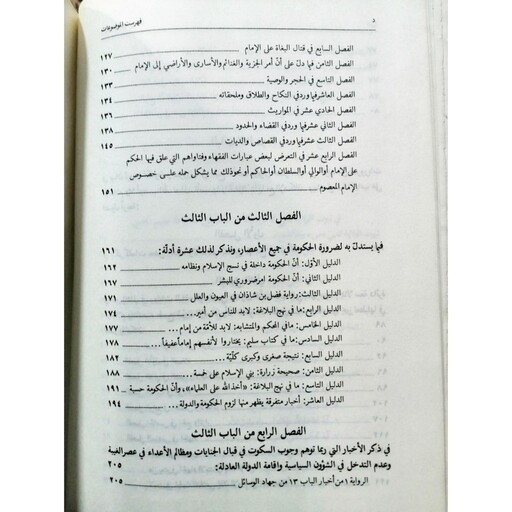 د
فهرست الموضوعات
الفصل السابع في قتال البغاة على الإمام ١٢٧
الفصل الثامن فيما دلّ على أنّ أمر الجزية والغنائم والأسارى والأراضي إلى الإمام ١٣٠
الفصل التاسع في الحجر والوصية ١٣٣
الفصل العاشر فيما ورد في النكاح والطلاق وملحقاته ١٣٤
الفصل الحادي عشر في المواريث ١٣٦
الفصل الثاني عشر فيما ورد في القضاء والحدود ١٣٨
الفصل الثالث عشر فيما ورد في القصاص والديات ١٤٥
الفصل الرابع عشر في التعرض لبعض عبارات الفقهاء وفتاواهم التي علق فيها الحكم
على الإمام أو الوالي أو السلطان أو الحاكم أو نحو ذلك مما يشكل حمله على خصوص
الإمام المعصوم ١٥١
الفصل الثالث من الباب الثالث
فيما يستدلّ به لضرورة الحكومة في جميع الأعصار، ونذكر لذلك عشرة أدلّة: ١٦١
الدليل الأوّل: أنّ الحكومة داخلة في نسج الإسلام ونظامه ١٦٢
الدليل الثاني: أنّ الحكومة أمر ضروري للبشر ١٦٧
الدليل الثالث: رواية فضل بن شاذان في العيون والعلل ١٧١
الدليل الرابع: ما في نهج البلاغة: لابد للناس من أمير... ١٧٤
الدليل الخامس: ما في المحكم والمتشابه: لابد للأمّة من إمام... ١٧٧
الدليل السادس: ما في كتاب سليم: يختاروا لأنفسهم إماماً عفيفاً... ١٧٨
الدليل السابع: نتيجة صغرى وكبرى كلّيّة ١٨٢
الدليل الثامن: صحيحة زرارة: بني الإسلام على خمسة... ١٨٨
الدليل التاسع: ما في نهج البلاغة: «أخذ الله على العلماء»، وأنّ الحكومة حسبة ... ١٩١
الدليل العاشر: أخبار متفرقة يظهر منها لزوم الحكومة والدولة... ١٩٤
الفصل الرابع من الباب الثالث
في ذكر الأخبار التي ربما توهم وجوب السكوت في قبال الجنايات ومظالم الأعداء في عصر الغيبة
وعدم التدخل في الشؤون السياسية وإقامة الدولة العادلة: ٢٠٥
الرواية ١ من أخبار الباب ١٣ من جهاد الوسائل ٢٠٥